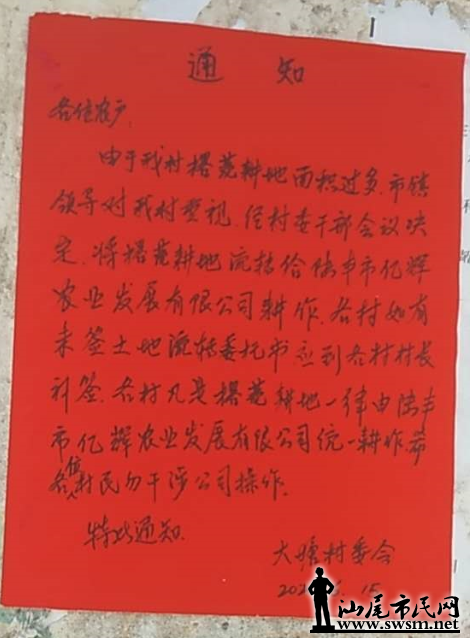 通 知
各位农户,
由于我村撂荒耕地面积过多,市镇
领导对我村重视,经村委干部会议决
定,将撂荒耕地流转给陆丰市亿辉
农业发展有限公司耕作,各村如有
未签土地流转委托书应到各村村长
补签,各村凡是撂荒耕地一律由陆丰
市亿辉农业发展有限公司统一耕作,希
各位村民勿干涉公司操作。
特此通知.
大塘村委会
6.15
汕尾市民网
www.swsm.net